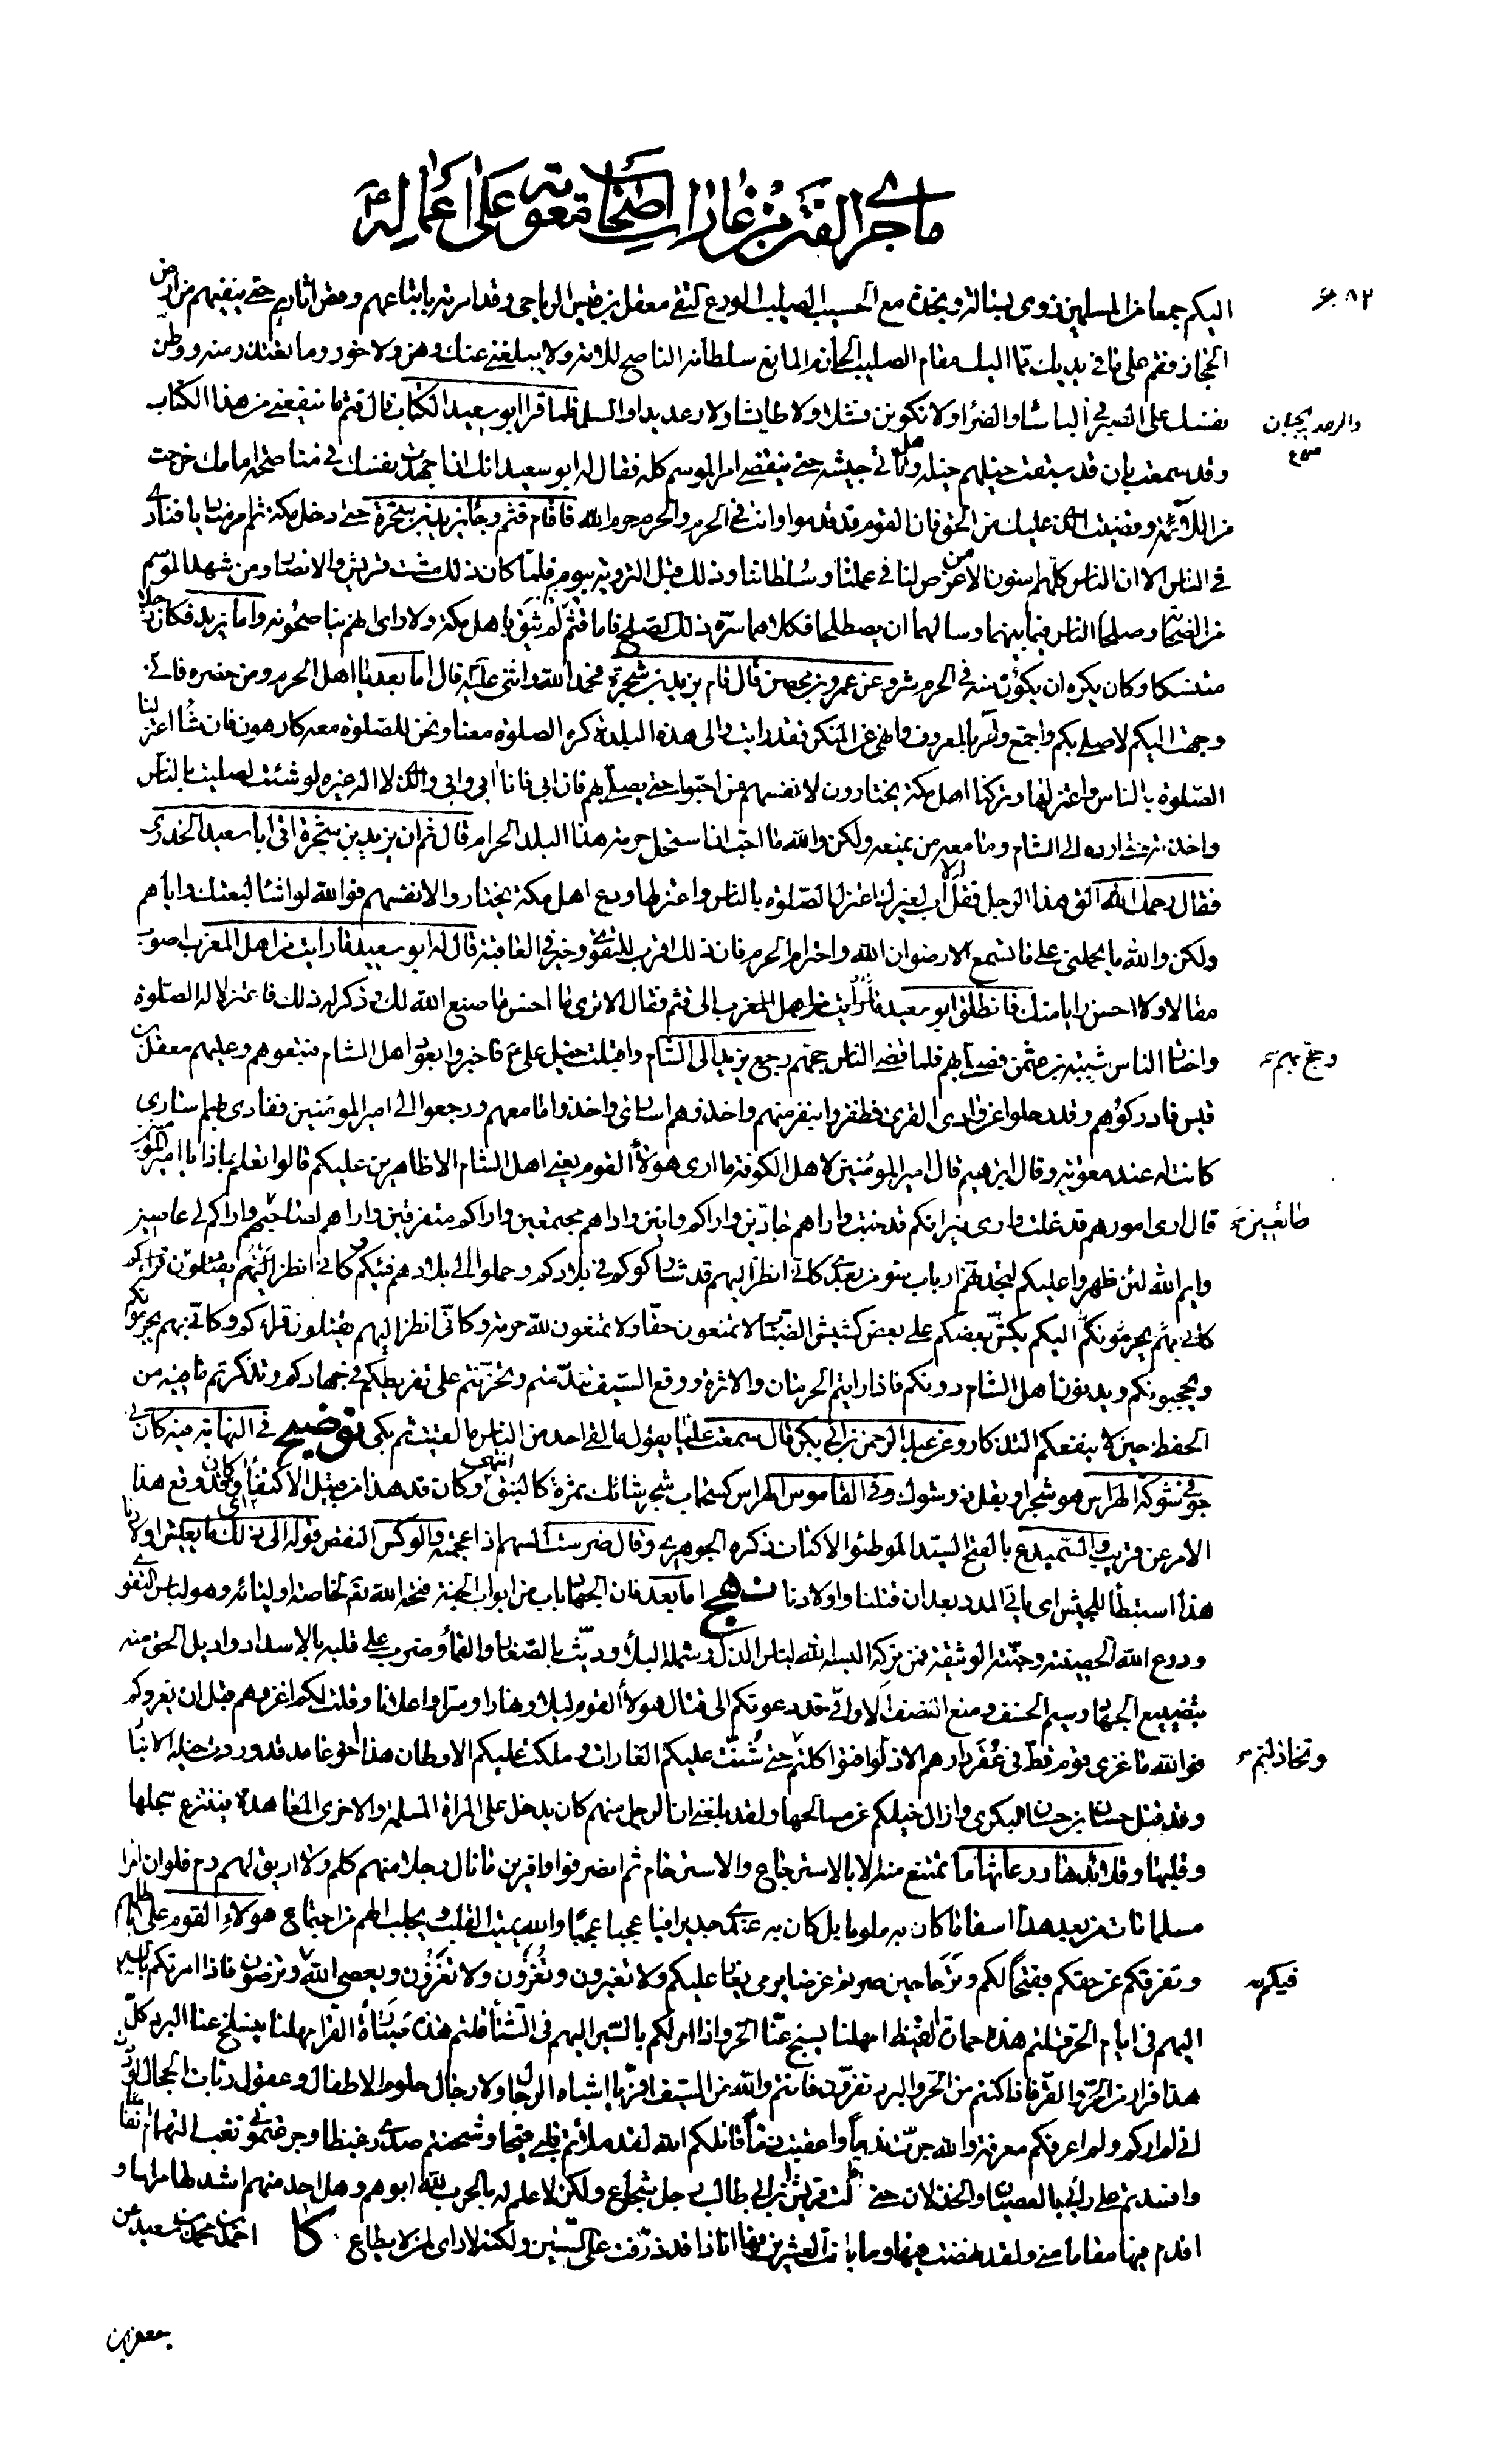 ما جرى من الفتن من غارات أصحاب معوية على أعماله
اليكم جمعا من المسلمين ذوى بسالة ونجدة مع الحسيب الصليب الورع التقى معقل بن قيس الرياحى وقد امرته باتباعهم وقص اثارهم حتى ينفيهم من ارض
الحجاز فقم على ما فى يديك مما اليك مقام الصليب الحازم المانع سلطانه الناصح للامة ولا يبلغنى عنك وهن ولا خور وما تعتذر منه ووطن
نفسك على الصبر فى البأساء والضراء ولا تكونن فشلا ولا طائشا ولا رعديدا والسلم فلما قرا ابو سعيد الكتاب قال قثم ما ينفعنى من هذا الكتاب
وقد سمعت بان قد سبقت خيلهم خيله وهل ياتى جيشه حتى ينقضى امر الموسم كله فقال له ابو سعيد انك ان اجهدت نفسك فى مناصحة امامك خرجت
من اللائمة وقضيت الذى عليك من الحق فان القوم قد قدموا وانت فى الحرم والحرم حرم الله فاقام قثم وجاء يزيد بن شجرة حتى دخل مكة ثم امر مناديا فنادى
فى الناس الا ان الناس كلهم امنون الا من عرض لنا فى عملنا وسلطاننا وذلك قبل التروية بيوم فلما كان ذلك مشت قريش والانصار ومن شهد الموسم
من الصحابة وصلحاء الناس فيما بينهما وسالهما ان يصطلحا فكلاهما سره ذلك الصلح فاما قثم لم يثق باهل مكة ولا راى انهم يناصحونه واما يزيد فكان رجلا
متنسكا وكان يكره ان يكون منه فى الحرم شر وعن عمرو بن محصن قال قام يزيد بن شجرة فحمد الله واثنى عليه ثم قال اما بعد يا اهل الحرم ومن حضره فانى
وجهت اليكم لاصلى بكم واجمع وآمر بالمعروف وانهى عن المنكر فقد رايت والى هذه البلدة كره الصلوة معنا ونحن للصلوة معه كارهون فان شاء اعتزلنا
الصلوة بالناس واعتزلها وتركنا اهل مكة يختارون لانفسهم من احبوا حتى يصلى بهم فان ابى فانا ابى وابى والذى لا اله غيره لو شئت لصليت بالناس
واخذته حتى ارده الى الشام وما معه من يمنعه ولكن والله ما احب ان استحل حرمة هذا البلد الحرام قال ثم ان يزيد بن شجرة اتى ابا سعيد الخدرى
فقال رحمك الله الق هذا الرجل فقل له لا اب لغيرك اعتزل الصلوة بالناس واعتزلها ودع اهل مكة يختاروا لانفسهم فوالله لو اشاء لبعتك واياهم
ولكن والله ما يحملنى على ما تسمع الا رضوان الله واحترام الحرم فان ذلك اقرب للتقوى وخير فى العاقبة قال له ابو سعيد ما رايت من اهل المغرب اصوب
مقالا ولا احسن رايا منك فانطلق ابو سعيد الى قثم فقال الا ترى ما احسن ما صنع الله لك وذكر له ذلك فاعتزلا الصلوة
واختار الناس شيبة بن عثمن فصلى بهم فلما قضى الناس حجهم رجع يزيد الى الشام واقبلت خيل على ع فاخبروا بعود اهل الشام فتبعوهم وعليهم معقل بن
قيس فادركوهم وقد رحلوا عن وادى القرى فظفروا بنفر منهم واخذوهم اسارى واخذوا ما معهم ورجعوا الى امير المؤمنين ففادى بهم اسارى
كانت له عند معوية وقال ابرهيم قال امير المؤمنين لاهل الكوفة ما ارى هؤلاء القوم يعنى اهل الشام الا ظاهرين عليكم قالوا تعلم بماذا يا امير المؤمنين
قال ارى امورهم قد علت وارى نيرانكم قد خبت واراهم جادين واراكم وانين واراهم مجتمعين واراكم متفرقين واراهم لصاحبهم طائعين واراكم لى عاصين
وايم الله لئن ظهروا عليكم لتجدنهم ارباب سوء من بعدى لكم كانى انظر اليهم قد شاركوكم فى بلادكم وحملوا الى بلادهم فيئكم وكانى انظر اليهم يقتلون قراءكم
كانى بهم يحرمونكم اليكم يكش بعضكم على بعض كشيش الضباب لا تمنعون حقا ولا تمنعون لله حرمة وكانى انظر اليهم يقتلون قراءكم وكانى بهم يحرمونكم
ويحجبونكم ويدنون اهل الشام دونكم فاذا رايتم الحرمان والاثرة ووقع السيف تندمتم وتحزنتم على تفريطكم فى جهادكم وتذكرتم ما فيه من
الحفظ حين لا ينفعكم التذكار وعن عبد الرحمن بن ابى بكر قال سمعت عليا يقول ما لقى احد من الناس ما لقيت ثم بكى توضيح فى النهاية فيه كان فى
جوفى شوكة الهراس هو شجر او بقل ذو شوك وفى القاموس الهراس كسحاب شجر شائك ثمره كالنبق انتهى وكان قد هذا من قبيل الاكتفاء اى وكان قد وقع هذا
الامر عن قريب والسميدع بالفتح السيد الموطئ الاكناف ذكره الجوهرى وقال ضرست السهم اذا عجمته والوكس النقص قوله الى ذلك ما يعيش اولادنا
هذا استبطاء للجيش اى ياتى المدد بعد ان قتلنا واولادنا نهج اما بعد فان الجهاد باب من ابواب الجنة فتحه الله تع لخاصة اوليائه وهو لباس التقوى
ودرع الله الحصينة وجنته الوثيقة فمن تركه البسه الله لباس الذل وشمله البلاء وديث بالصغار والقماء وضرب على قلبه بالاسداد واديل الحق منه
بتضييع الجهاد وسيم الخسف ومنع النصف الا وانى قد دعوتكم الى قتال هؤلاء القوم ليلا ونهارا وسرا واعلانا وقلت لكم اغزوهم قبل ان يغزوكم
فوالله ما غزى قوم قط فى عقر دارهم الا ذلوا فتواكلتم وتخاذلتم حتى شنت عليكم الغارات وملكت عليكم الاوطان هذا اخو غامد قد وردت خيله الانبار
وقد قتل حسان بن حسان البكرى وازال خيلكم عن مسالحها ولقد بلغنى ان الرجل منهم كان يدخل على المراة المسلمة والاخرى المعاهدة فينتزع حجلها
وقلبها وقلائدها ورعاثها ما تمتنع منه الا بالاسترجاع والاسترحام ثم انصرفوا وافرين ما نال رجلا منهم كلم ولا اريق لهم دم فلو ان امرا
مسلما مات من بعد هذا اسفا ما كان به ملوما بل كان به عندى جديرا فيا عجبا عجبا والله يميت القلب ويجلب الهم من اجتماع هؤلاء القوم على باطلهم
وتفرقكم عن حقكم فقبحا لكم وترحا حين صرتم غرضا يرمى يغار عليكم ولا تغيرون وتغزون ولا تغزون ويعصى الله وترضون فاذا امرتكم بالسير
اليهم فى ايام الحر قلتم هذه حمارة القيظ امهلنا يسبخ عنا الحر واذا امرتكم بالسير اليهم فى الشتاء قلتم هذه صبارة القر امهلنا ينسلخ عنا البرد كل
هذا فرارا من الحر والقر فاذا كنتم من الحر والبرد تفرون فانتم والله من السيف افر يا اشباه الرجال ولا رجال حلوم الاطفال وعقول ربات الحجال لوددت
انى لم اركم ولم اعرفكم معرفة والله جرت ندما واعقبت ذما قاتلكم الله لقد ملاتم قلبى قيحا وشحنتم صدرى غيظا وجرعتمونى نغب التهمام انفاسا
وافسدتم على رايى بالعصيان والخذلان حتى قالت قريش ان ابن ابى طالب رجل شجاع ولكن لا علم له بالحرب لله ابوهم وهل احد منهم اشد لها مراسا و
اقدم فيها مقاما منى ولقد نهضت فيها وما بلغت العشرين وها انا ذا قد ذرفت على الستين ولكن لا راى لمن لا يطاع كا احمد بن محمد بن سعيد عن
جعفر بن
والرعديد الجبان
صحاح
وحج بهم
طائعين
وتخاذلتم
فيكم